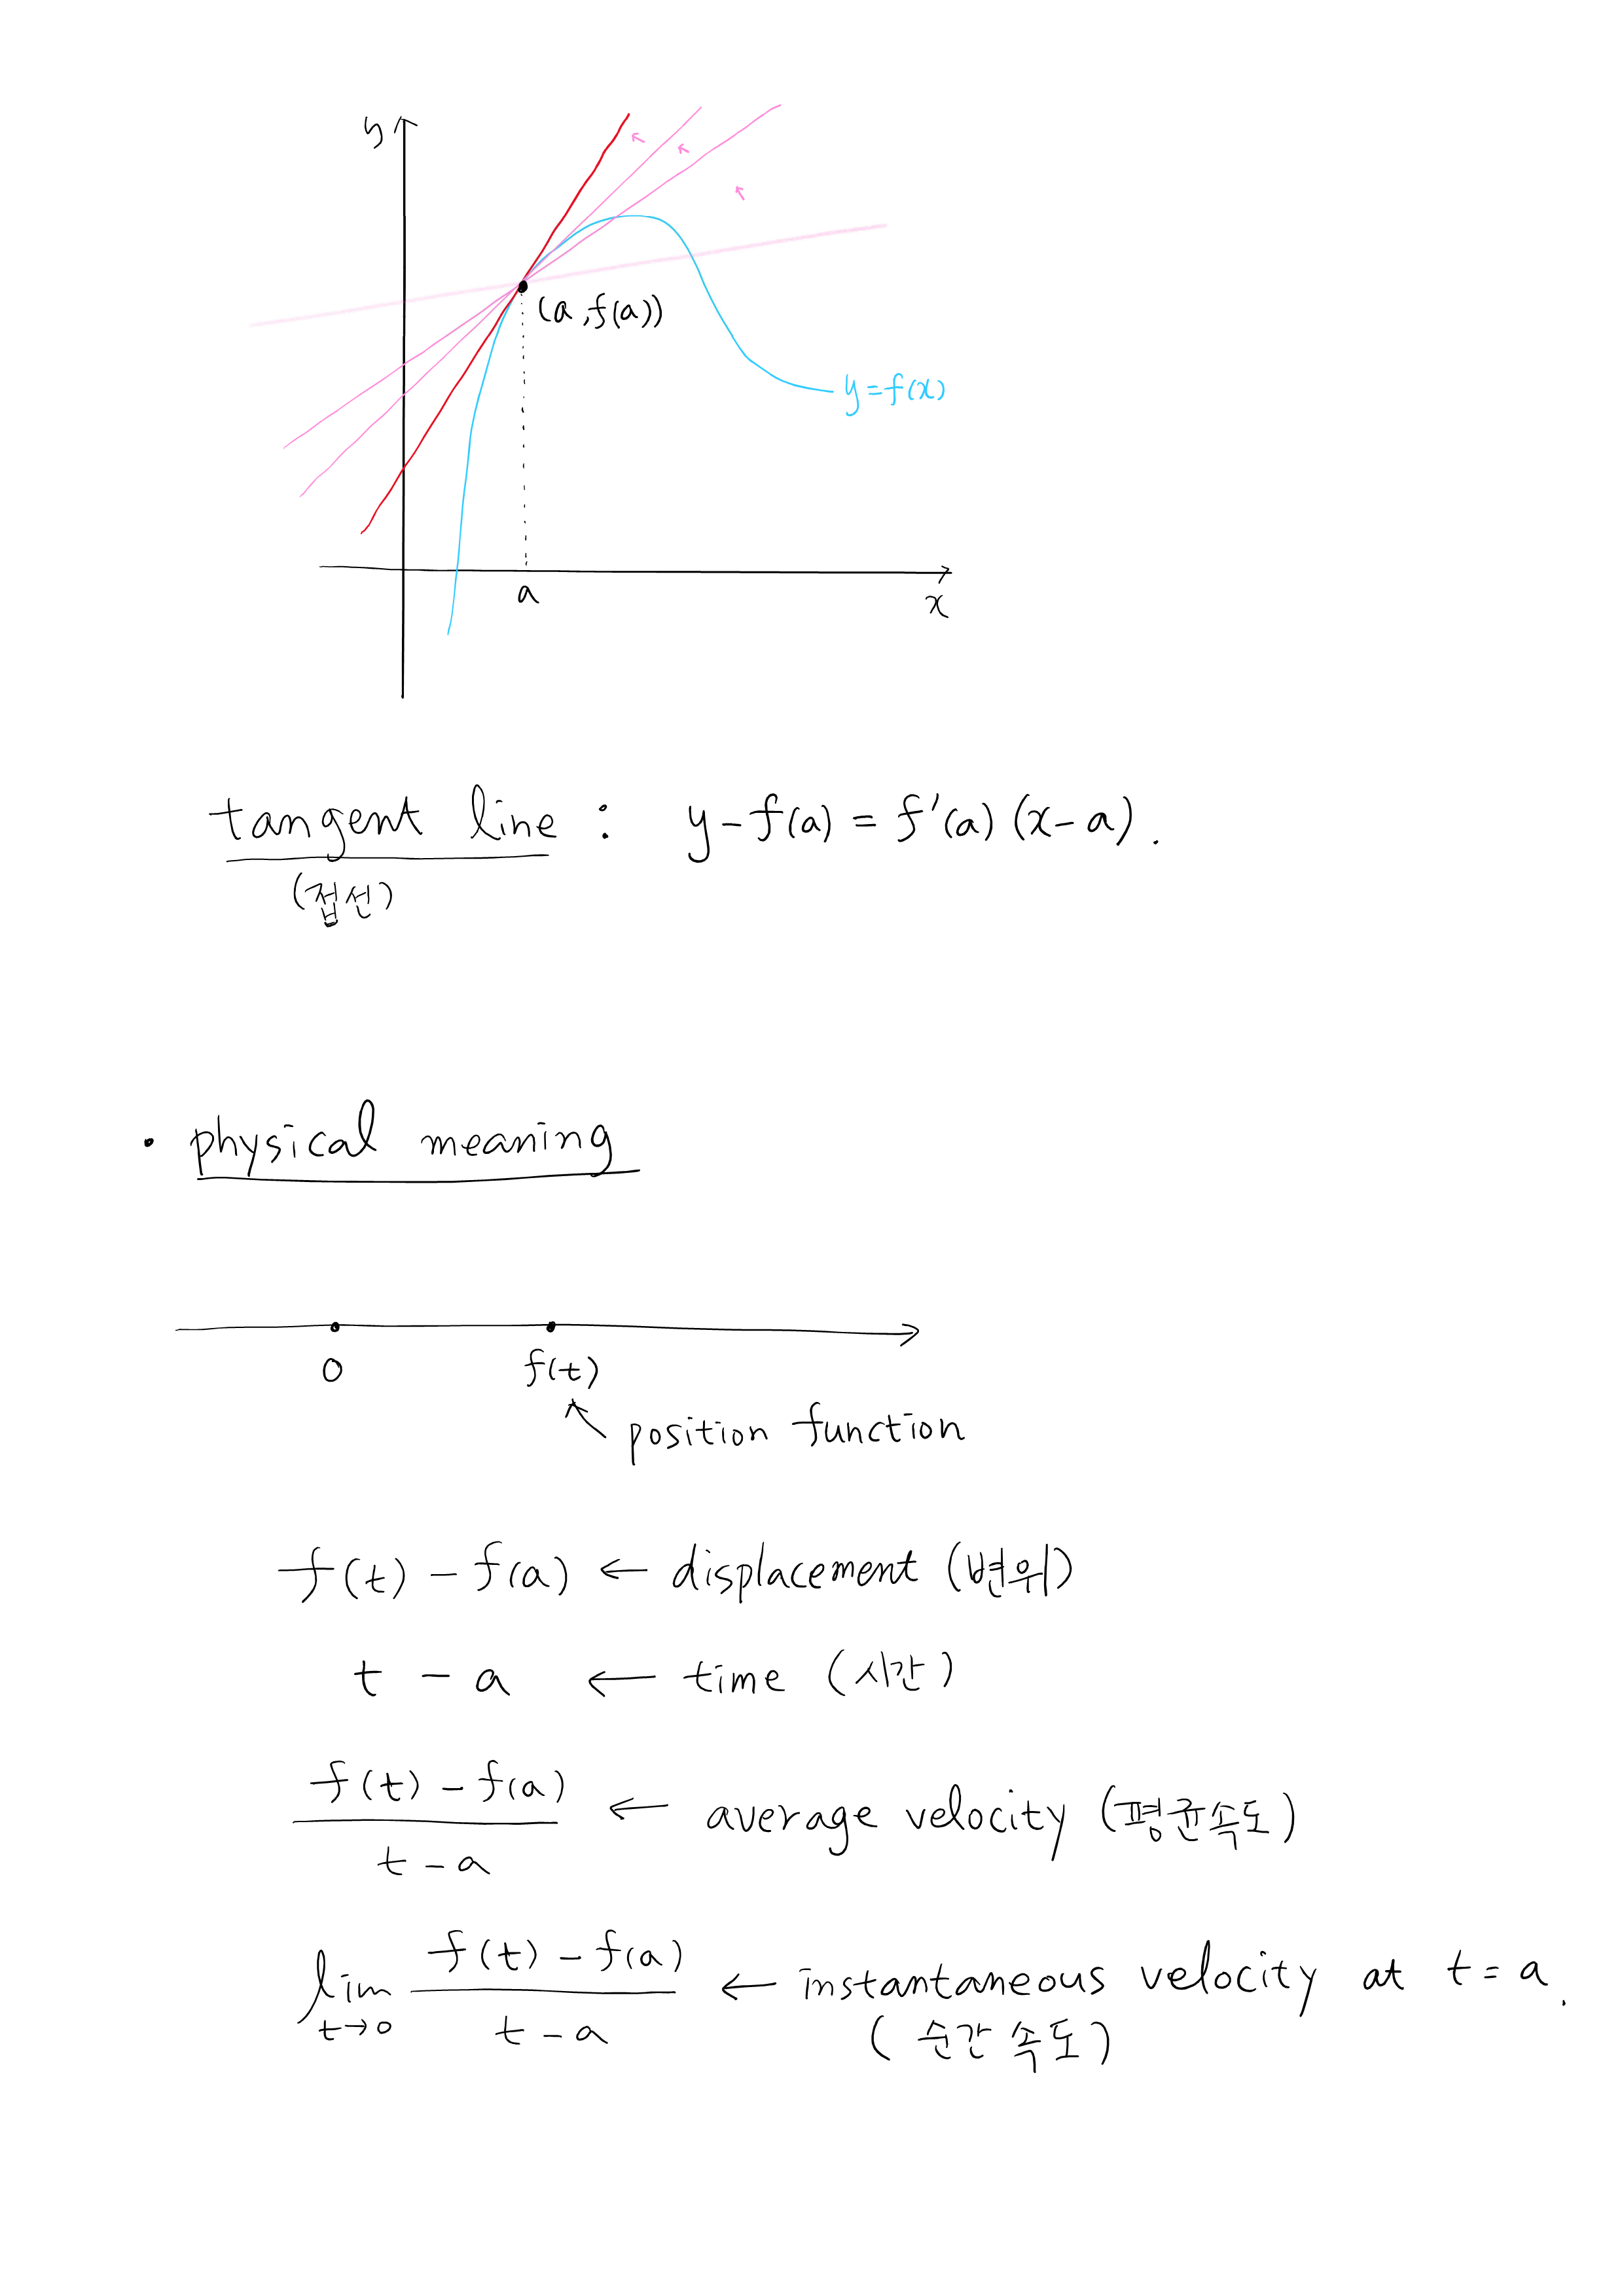 y
(a, f(a))
y = f(x)
a
x
tangent line : y - f(a) = f'(a) (x - a).
(접선)
• physical meaning
0 f(t)
↖ position function
f(t) - f(a) ← displacement (변위)
t - a ← time (시간)
f(t) - f(a)
t - a
← average velocity (평균속도)
lim t→0
f(t) - f(a)
t - a
← instantaneous velocity at t = a.
(순간속도)